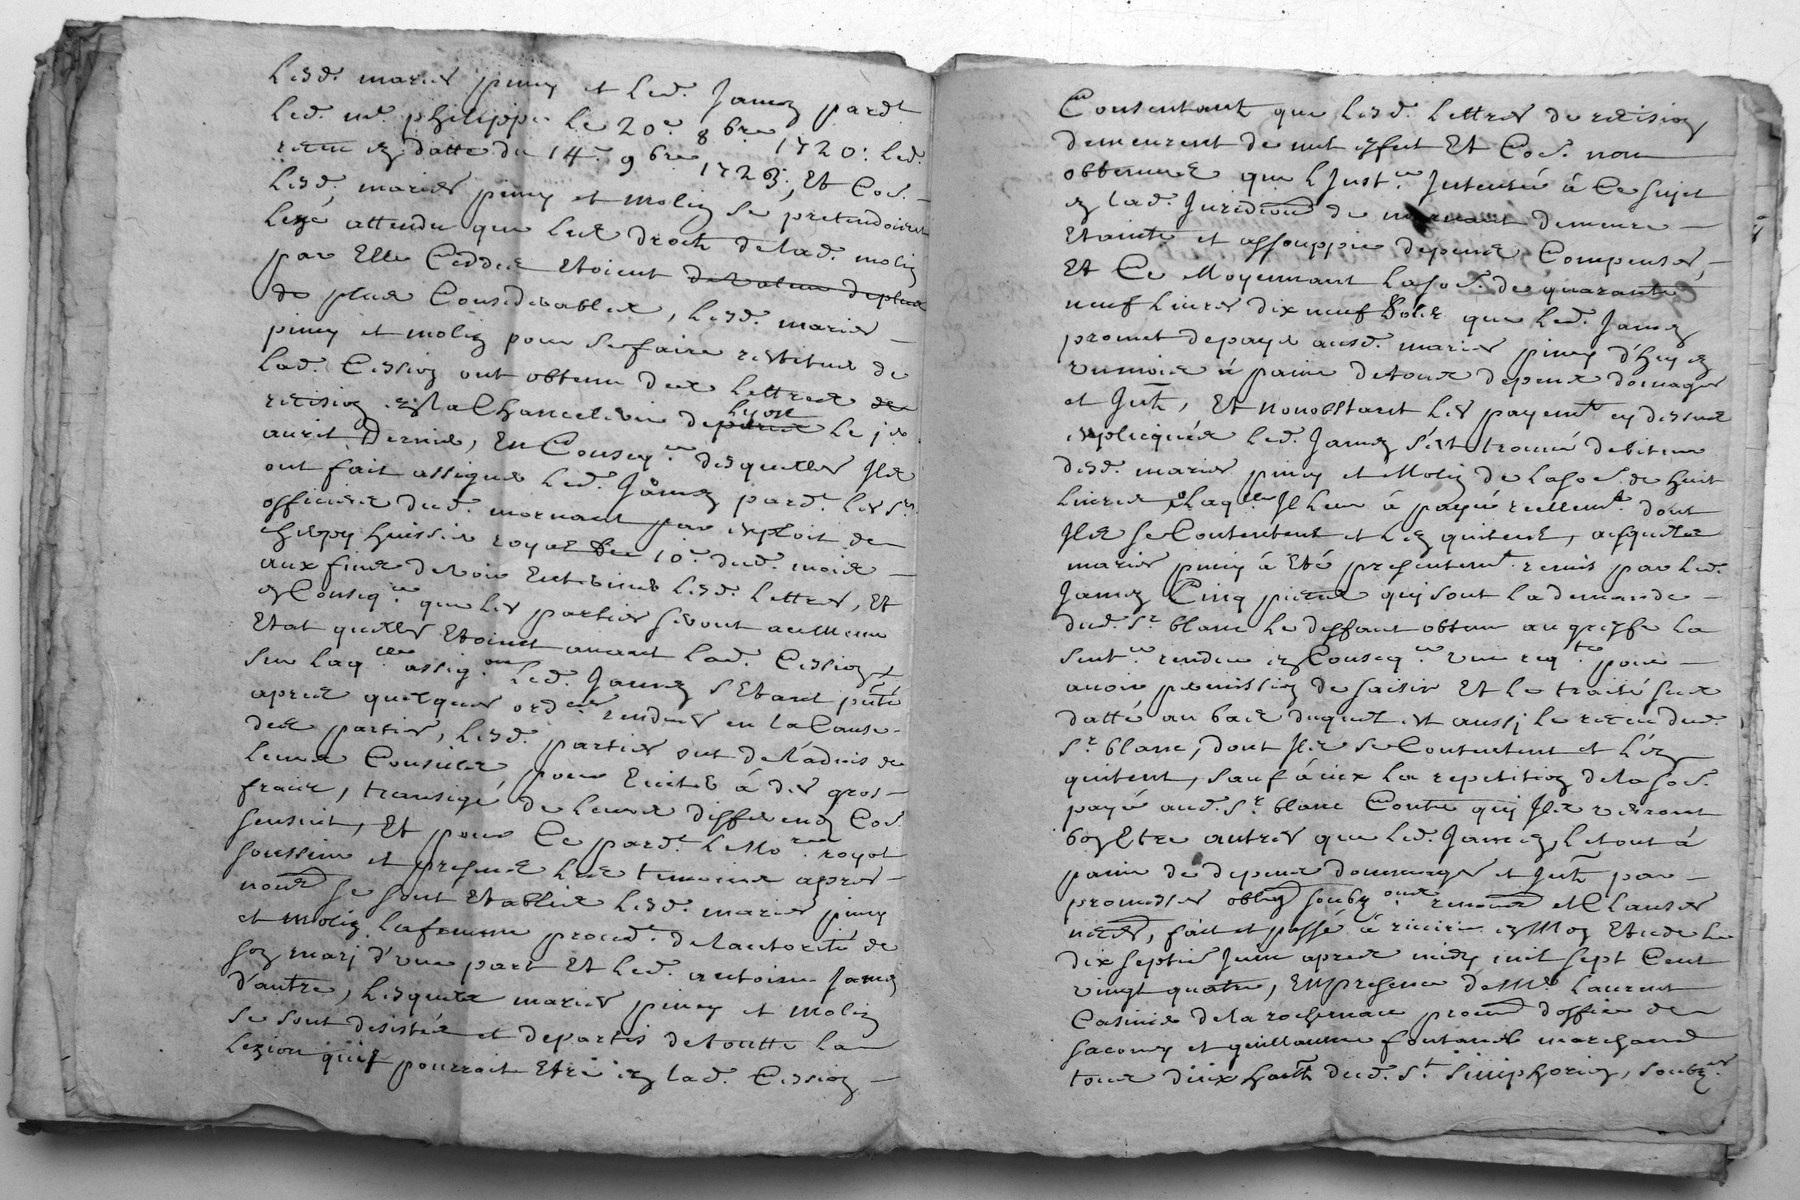 lesd. mariés piney et led. Jamez pardt
led. me. philippe le 20e. 8bre 1720. led.
receu en datte du 14e. 9bre 1723, Et Co͞e.
lesd. mariés piney et molin se pretendoient
lezé attendu que les droits de lad. molin
par Elle Ceddés Etoient de valeur de plus
de plus Considerables, lesd. mariés
piney et molin pour se faire restituer de
lad. Cession ont obtenu des lettres de
recision en la Chancelerie de paris lyon le
avril Dernier, En Conseqce. desquelles Ils
ont fait assigner led. Jamez pardt. les srs.
officiers dud. mornant par exploit de
huissier royal du 10e. dud. mois
aux fins de voir Enteriner lesd. lettres, Et
en Conseqce. que les parties seront au meme
Etat quelles Etoient avant lad. Cession
sur laqlle assigon led. Jamez s'Etant pnté
apres quelques ordces rendues en la Cause
des parties, lesd. parties ont de l'advis de
leurs Conseils, pour Eviter à des gros
fraix, transigé de leurs differends Co͞e
sensuit, Et pour Ce pardt. le nore royal
soussigné et presens les temoins apres
nommés se sont Etablis lesd. mariés piney
et molin la femme proced. de l'autorité de
son mary d'une part Et led. antoine Jamez
d'autre, lesquels mariés piney et molin
se sont desistés et departis de toutte la
lezion qu'il pourroit Etre en lad. Cession
Consentant que lesd. lettres de recision
demeurent de nul effet Et Co͞e. non
obtenues que l'Instce Intentée à Ce sujet
en lad. Juridiction de mornant demeure
Etainte et assouppie depens Compensés,
Et Ce Moyennant la so͞e. de quarante
neuf livres dix neuf sols que led. Jamez
promet de payer ausd. mariés piney d'huy en
un mois à peine de tous depens domages
et Intts, Et nonobstant les payemts cy dessus
expliequés led. Jamez s'est trouvé debiteur
desd. mariés piney et Molin de la so͞e. de huit
livres laqlle Il leur à payé reellemt. dont
Ils se Contentent et l'en quittent, ausquels
mariés piney à Eté presentemt. remis par led.
Jamez Cinq pieces quy sont la demande
dud. Sr. blanc le deffaut obtenu au greffe la
sentce rendue en Conseqce une reqte pour
avoir permission de saisir Et le traité sus
datté au bas duquel est aussy le receu dud.
Sr. blanc, dont Ils se Contentent et l'en
quittent, sauf à eux la repetition de la so͞e.
payé aud. Sr. blanc Contre quy Ils verront
bon Etre autres que led. Jamez, le tout à
peine de depens dommages et Intts par
promesses oblig soubzons renonc et Clauses
necess, fait et passé à riverie en Mon Etude le
dix septe Juin apres midy mil sept Cent
vingt quatre, En presence de Me. laurent
Casimir de la rochenau procur d'office de
saconey et guillaume fontanel marchand
tous deux habts dud. St. simphorien, soubznés